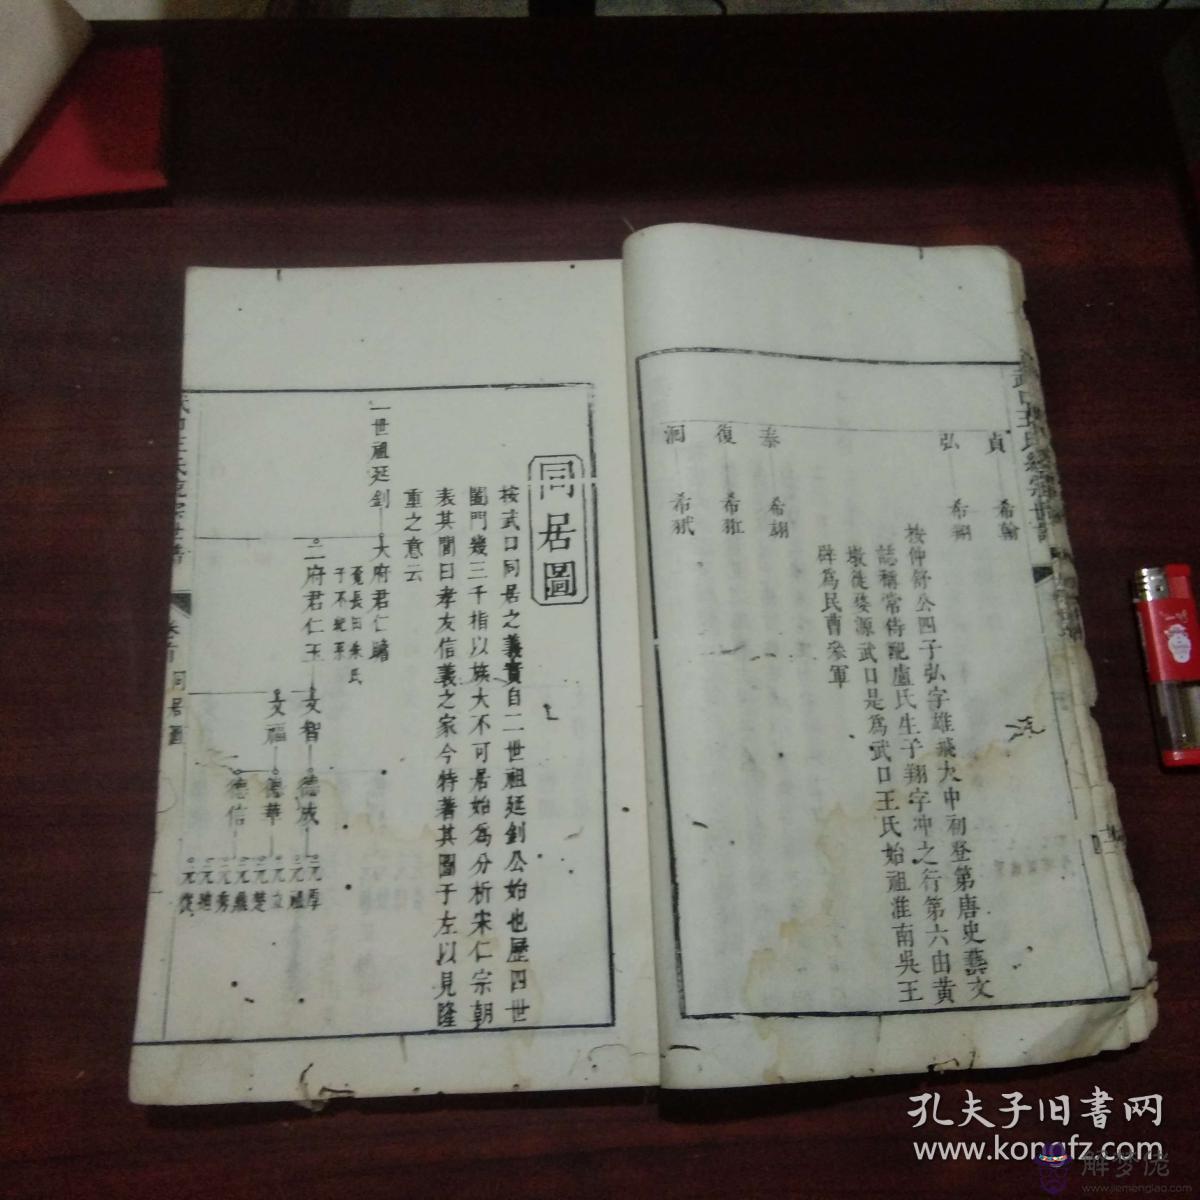 貞 希翰
弘 希翔
按仲舒公四子弘字雄飛大中初登第唐史藝文
誌稱常侍配盧氏生子翔字冲之行第六由黄
墩徙婺源武口是爲武口王氏始祖淮南吳王
辟爲民曹叅軍
泰 希翊
復 希
洄 希
同居圖
按武口同居之義實自二世祖延釗公始也歷四世
闔門幾三千指以族大不可居始為分析宋仁宗朝
表其閭曰孝友信義之家今特著其圖于左以見隆
重之意云
一世祖延釗
大府君仁
子不
二府君仁玉
文智
文福
德成
德華
德信
元厚
元祖
元立
元楚
元秀
卷首 同居圖
孔夫子旧書网
www.kongfz.com
解梦佬
www.jiemenglao.com